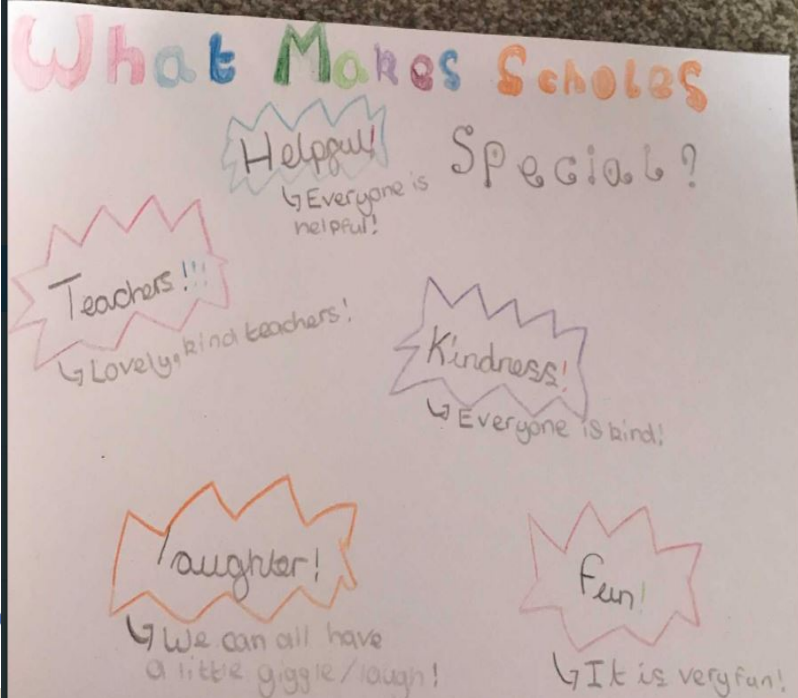 What Makes Scholes
Special?
Helpful!
↳Everyone is
helpful!
Teachers!!!
↳Lovely, kind teachers!
Kindness!
↳Everyone is kind!
laughter!
↳We can all have
a little giggle/laugh!
fun!
↳It is very fun!